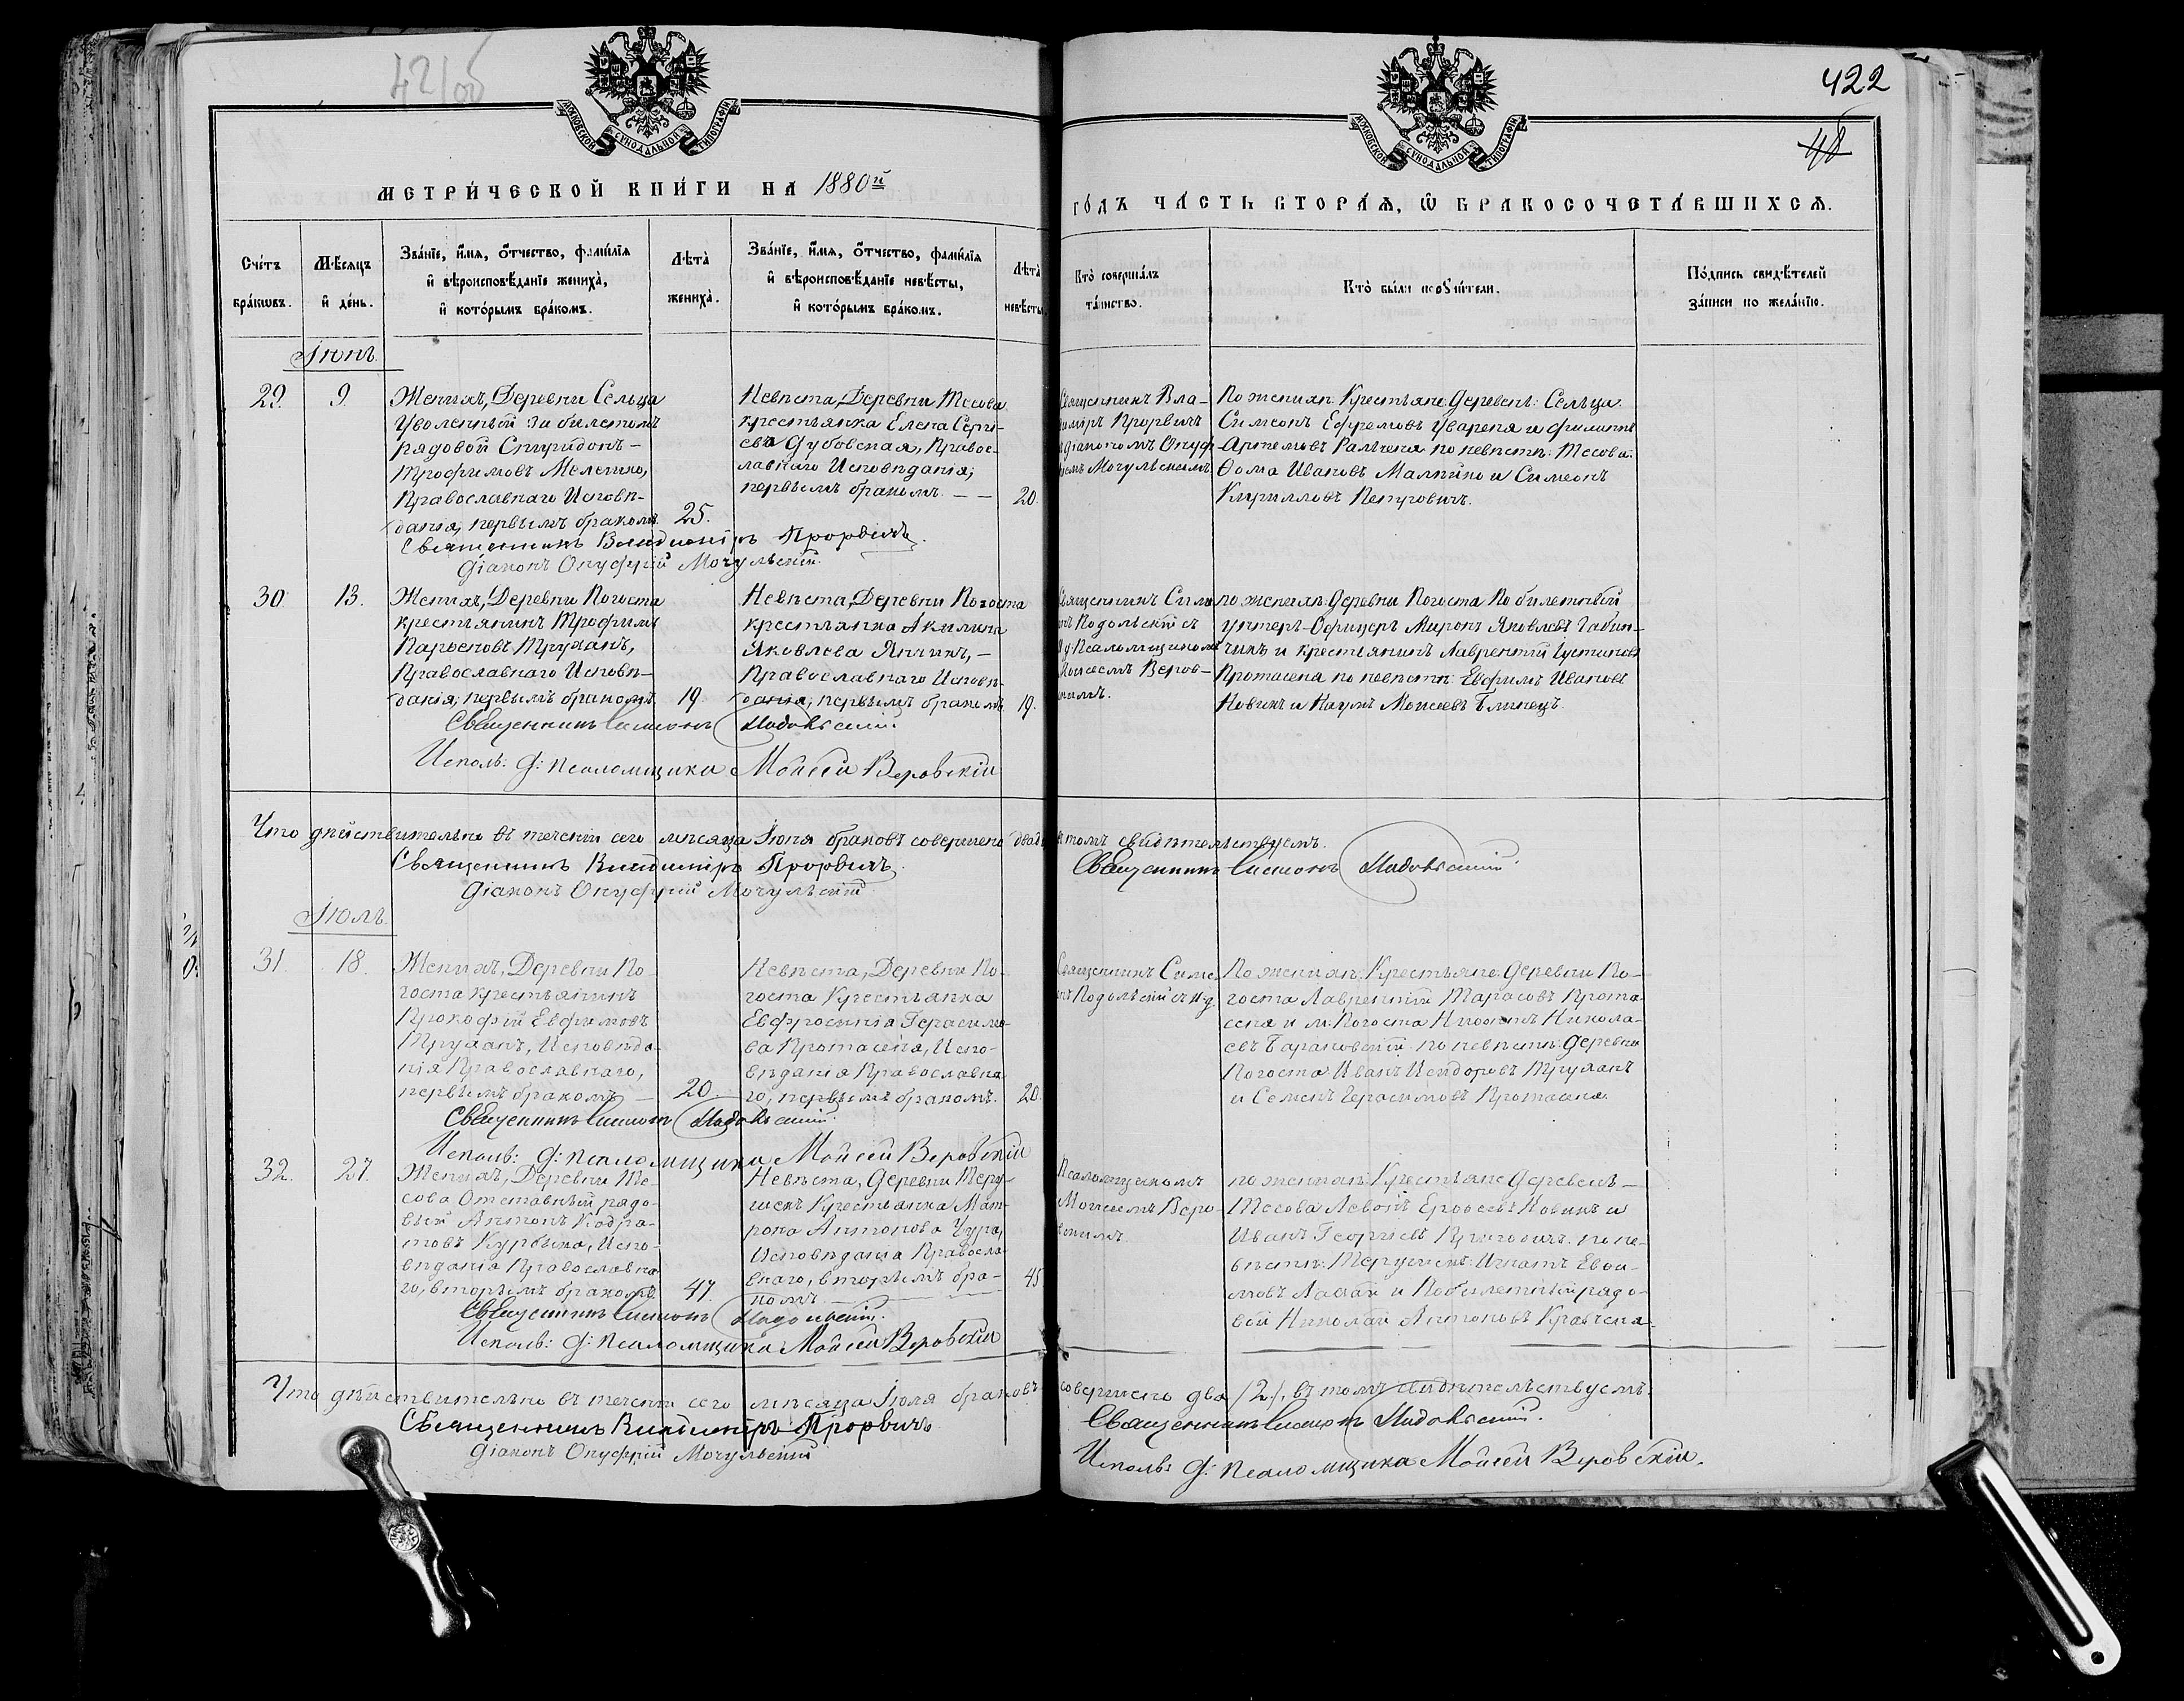 421об
422
48
МОСКОВСКОЙ СУНОДАЛЬНОЙ ТИПОГРАФІИ
МОСКОВСКОЙ СУНОДАЛЬНОЙ ТИПОГРАФІИ
МЕТРИ́ЧЕСКОЙ КНИ́ГИ НА 1880й
ГО́ДЪ ЧА́СТЬ ВТОРА́Ѧ, Ѽ БРАКОСОЧЕТА́ВШИХСѦ.
Сче́тъ бра́кωвъ.
Мѣ́сѧцъ и҆ де́нь.
Зва́нїе, и҆́мѧ, о҆́тчество, фами́лїѧ
и҆ вѣроисповѣ́данїе жениха̀,
и҆ кото́рымъ бра́комъ.
Лѣта̀ жениха̀.
Зва́нїе, и҆́мѧ, о҆́тчество, фами́лїѧ
и҆ вѣроисповѣ́данїе невѣ́сты,
и҆ кото́рымъ бра́комъ.
Лѣта̀ невѣ́сты.
Кто̀ соверша́лъ
та́инство.
Кто̀ бы́ли порꙋчи́тели.
По́дпись свидѣ́телей
за́писи по жела́нїю.
Іюнь.
29. 9.
Женихъ, Деревни Сельца
Уволенный За билетомъ
рядовой Спиридонъ
Трофимовъ Мелешко,
Православнаго Исповѣ-
данія, первымъ бракомъ. 25.
Невѣста, Деревни Тесова
крестьянка Елена Сергі-
ева Дубовская, Правос-
лавнаго Исповѣданія,
первымъ бракомъ. — — 20.
Священникъ Вла-
диміръ Прорвичъ
съ діакономъ Онуф-
ріемъ Мочульскимъ
По женихѣ: Крестьяне деревень: Сельца.
Симеонъ Ефремовъ и Филиппъ
Артемовъ по невѣстѣ: Тесова:
Ѳома Ивановъ и Симеонъ
Кирилловъ Петровичъ.
Священникъ Владиміръ Прорвичъ.
Діаконъ Онуфрій Мочульскій.
30. 13.
Женихъ, Деревни Погоста
крестьянинъ Трофимъ
Парѳеновъ Труханъ,
Православнаго Исповѣ-
данія, первымъ бракомъ. 19.
Невѣста, Деревни Погоста
крестьянка Акилина
Яковлева Янчинъ, —
Православнаго Исповѣ-
данія, первымъ бракомъ. 19.
Священникъ Симе-
онъ Подольскій съ
Псаломщикомъ
Моисеемъ Веров-
скимъ.
по женихѣ: деревни Погоста По билетный
унтеръ-Офицеръ Миронъ Яковлевъ
и крестьянинъ Лаврентій Іустиновъ
Протасеня по невѣстѣ: Евфимъ Ивановъ
Новикъ и Наумъ Моисеевъ Блинецъ.
Священникъ Симеонъ Подольскій.
Исполь: д: псаломщика Мойсей Веровскій
Что дѣйствительно въ теченіи сего мѣсяца Іюня браковъ совершено два
въ томъ свидѣтельствуемъ.
Священникъ Владиміръ Прорвичъ.
Діаконъ Онуфрій Мочульскій.
Священникъ Симеонъ Подольскій.
Іюль.
31. 18.
Женихъ, Деревни По-
госта крестьянинъ
Прокофій Евфимовъ
Труханъ, Исповѣда-
нія Православнаго,
первымъ бракомъ — 20.
Невѣста, Деревни По-
госта Крестьянка
Евфросинія Герасимо-
ва Протасеня, Испо-
вѣданія Православна-
го, первымъ бракомъ. 20.
Священникъ Симе-
онъ Подольскій съ И. д.
По женихѣ: Крестьяне деревни По-
госта Лаврентій Тарасовъ Прота-
сеня и м. Погоста Никола-
евъ Барановскій по невѣстѣ: деревни
Погоста Иванъ Исидоровъ Труханъ
и Семенъ Герасимовъ Протасеня.
Священникъ Симеонъ Подольскій.
Исполь: д: псаломщика Мойсей Веровскій
32. 27.
Женихъ, Деревни Те-
сова Отставный рядо-
вый Антонъ Кодра-
товъ Курбыко, Испо-
вѣданія Православна-
го, вторымъ бракомъ. 47.
Невѣста, деревни Теру-
шекъ Крестьянка Мат-
рона Антонова Чура,
Исповѣданія Правосла-
внаго, вторымъ бра-
комъ. — 45
Псаломщикомъ
Моисеемъ Веро-
вскимъ
по женихѣ: Крестьяне деревень —
Тесова Левонъ Ероѳеевъ Новикъ и
Иванъ Георгіевъ по не-
вѣстѣ: Терушекъ: Игнатъ Евѳи-
мовъ и Побилетный рядо-
вой Николай Антоновъ Кравченя
Священникъ Симеонъ Подольскій.
Исполь: д: псаломщика Мойсей Веровскій
Что дѣйствительно въ теченіи сего мѣсяца Іюля браковъ совершено два /2/, въ томъ свидѣтельствуемъ:
Священникъ Владиміръ Прорвичъ
Діаконъ Онуфрій Мочульскій
Священникъ Симеонъ Подольскій.
Исполь: д: псаломщика Мойсей Веровскій.